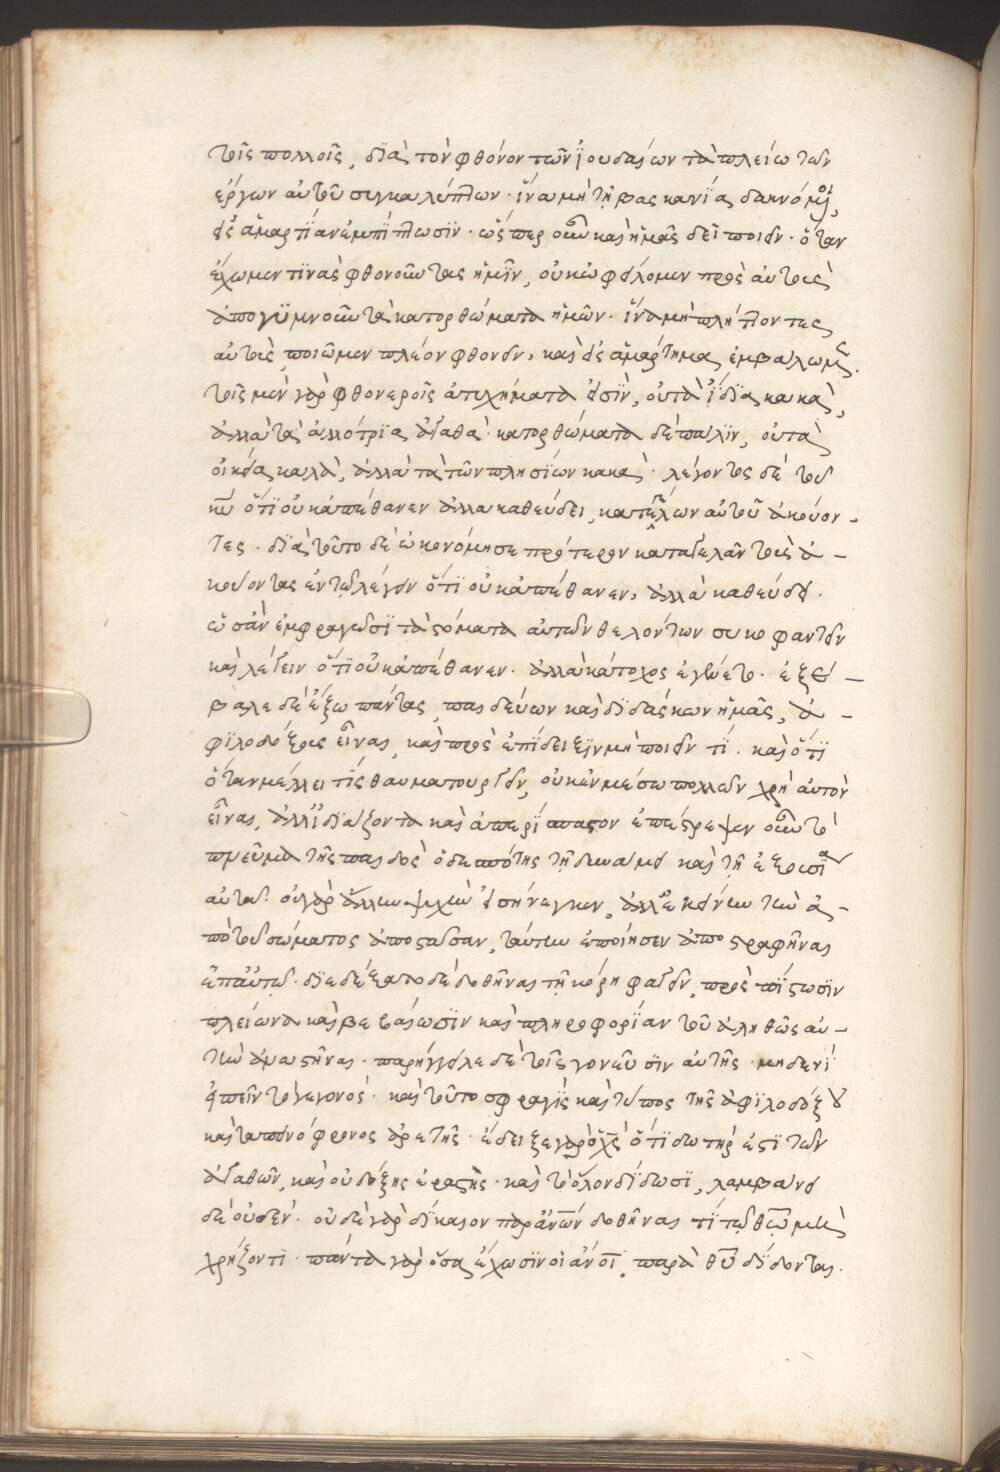 τοῖς πολλοῖς, διὰ τὸν φθόνον τῶν ἰουδαίων τὰ πλείω τῶν
ἔργων αὐτοῦ συγκαλύπτων · ἵνα μὴ τῆ βασκανία δακνόμενοι,
εἰς ἁμαρτίαν ἐμπίπτωσιν · ὥσπερ οὖν καὶ ἡμᾶς δεῖ ποιεῖν · ὅταν
ἔχωμεν τινὰς φθονοῦντας ἡμῖν, οὐκ ὠφείλομεν πρὸς αὐτοὺς
ἀπογυμνοῦν τὰ κατορθώματα ἡμῶν · ἵνα μὴ πλήττοντες
αὐτοὺς ποιῶμεν πλέον φθονεῖν, καὶ εἰς ἁμάρτημα ἐμβάλωμεν.
τοῖς μὲν γὰρ φθονεροῖς ἀτυχήματα εἰσὶν, οὐ τὰ ἴδια κακὰ,
ἀλλὰ τὰ ἀλλότρια ἀγαθά · κατορθώματα δὲ πάλιν, οὐ τὰ
οἰκεῖα καλὰ, ἀλλὰ τὰ τῶν πλησίων κακὰ · λέγοντος δὲ τοῦ
κυ ὅτι οὐκ ἀπέθανεν ἀλλα καθεύδει, κατεγέλων αὐτοῦ ἀκούον-
τες · διὰ τοῦτο δὲ ὠκονόμησε πρότερον καταγελᾶν τοὺς ἀ-
κούοντας ἐν τῶ λέγειν ὅτι οὐκ ἀπέθανεν, ἀλλὰ καθεύδει ·
ὡσὰν ἐμφραγῶσι τὰ στόματα αὐτῶν θελόντων συκοφαντεῖν
καὶ λέγειν ὅτι οὐκ ἀπέθανεν · ἀλλὰ κάτοχος ἐγένετο · ἐξέ-
βαλε δὲ ἔξω πάντας, παιδεύων καὶ διδάσκων ἡμᾶς, ἀ-
φιλοδόξους εἶναι, καὶ πρὸς ἐπίδειξιν μὴ ποιεῖν τί · καὶ ὅτι
ὅταν μέλλει τίς θαυματουργεῖν, οὐκ ἐν μέσω πολλῶν χρὴ αὐτὸν
εἶναι, ἀλλ' ἰδιάζοντα καὶ ἀπερίσπαστον ἐπέστρεψεν οὖν τὸ
πνεῦμα τῆς παιδὸς ὁ δεσπότης τῆ δυνάμει καὶ τῆ ἐξουσία
αὐτοῦ · οὐ γὰρ ἄλλην ψυχὴν εἰσήνεγκεν, ἀλλ' ἐκείνην τὴν ἀ-
πὸ τοῦ σώματος ἀποστᾶσαν, ταύτην ἐποίησεν ἀποστραφῆναι
ἐπ' αὐτῶ · διεδέξατο δὲ δοθῆναι τῆ κόρη φαγεῖν, πρὸς πίστωσιν
πλείωνα καὶ βεβαίωσιν καὶ πληροφορίαν τοῦ ἀληθῶς αὐ-
τὴν ἀναστῆναι · παρήγγειλε δὲ τοῖς γονεῦσιν αὐτῆς · μηδενὶ
εἰπεῖν τὸ γεγονός · καὶ τοῦτο σφραγὶς καὶ τύπος τῆς ἀφιλοδόξου
καὶ ταπεινόφρονος ἀρετῆς · ἔδειξε γὰρ ὁ χς ὅτι δωτήρ ἐστι τῶν
ἀγαθῶν, καὶ οὐ δόξης ἐραστὴς · καὶ τὸ ὅλον δίδωσι, λαμβάνει
δὲ οὐδέν · οὐδὲ γὰρ δίκαιον παρ' ἀνων δοθῆναι τί τῶ θω μὴ
χρήζοντι · πάντα γὰρ ὅσα ἔχωσιν οἱ ἀνοι, παρὰ θυ δίδονται.